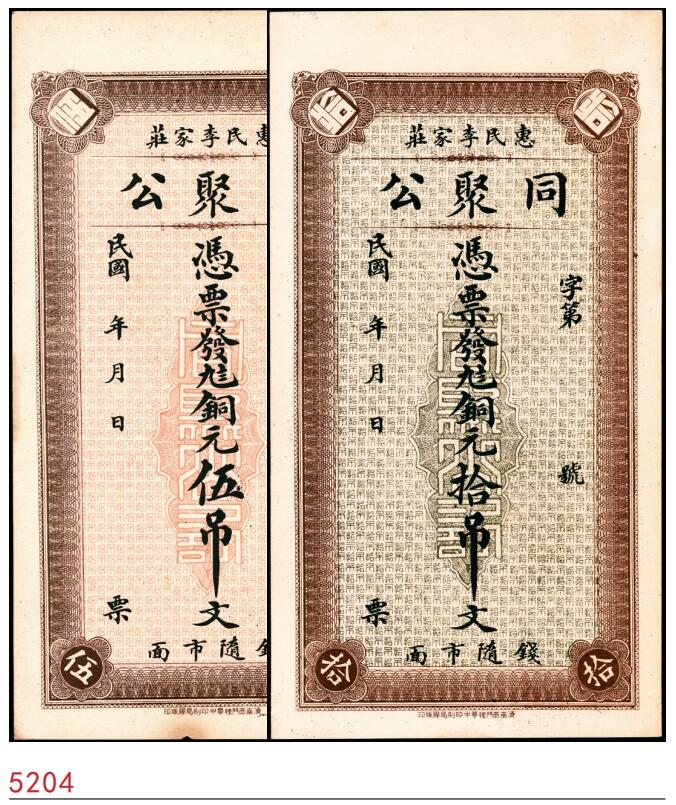 惠民李家莊
聚公
憑票發九底銅元伍吊文
民國 年 月 日
票
錢隨市面
伍
惠民李家莊
同聚公
字第 號
憑票發九底銅元拾吊文
民國 年 月 日
票
錢隨市面
拾
拾
5204